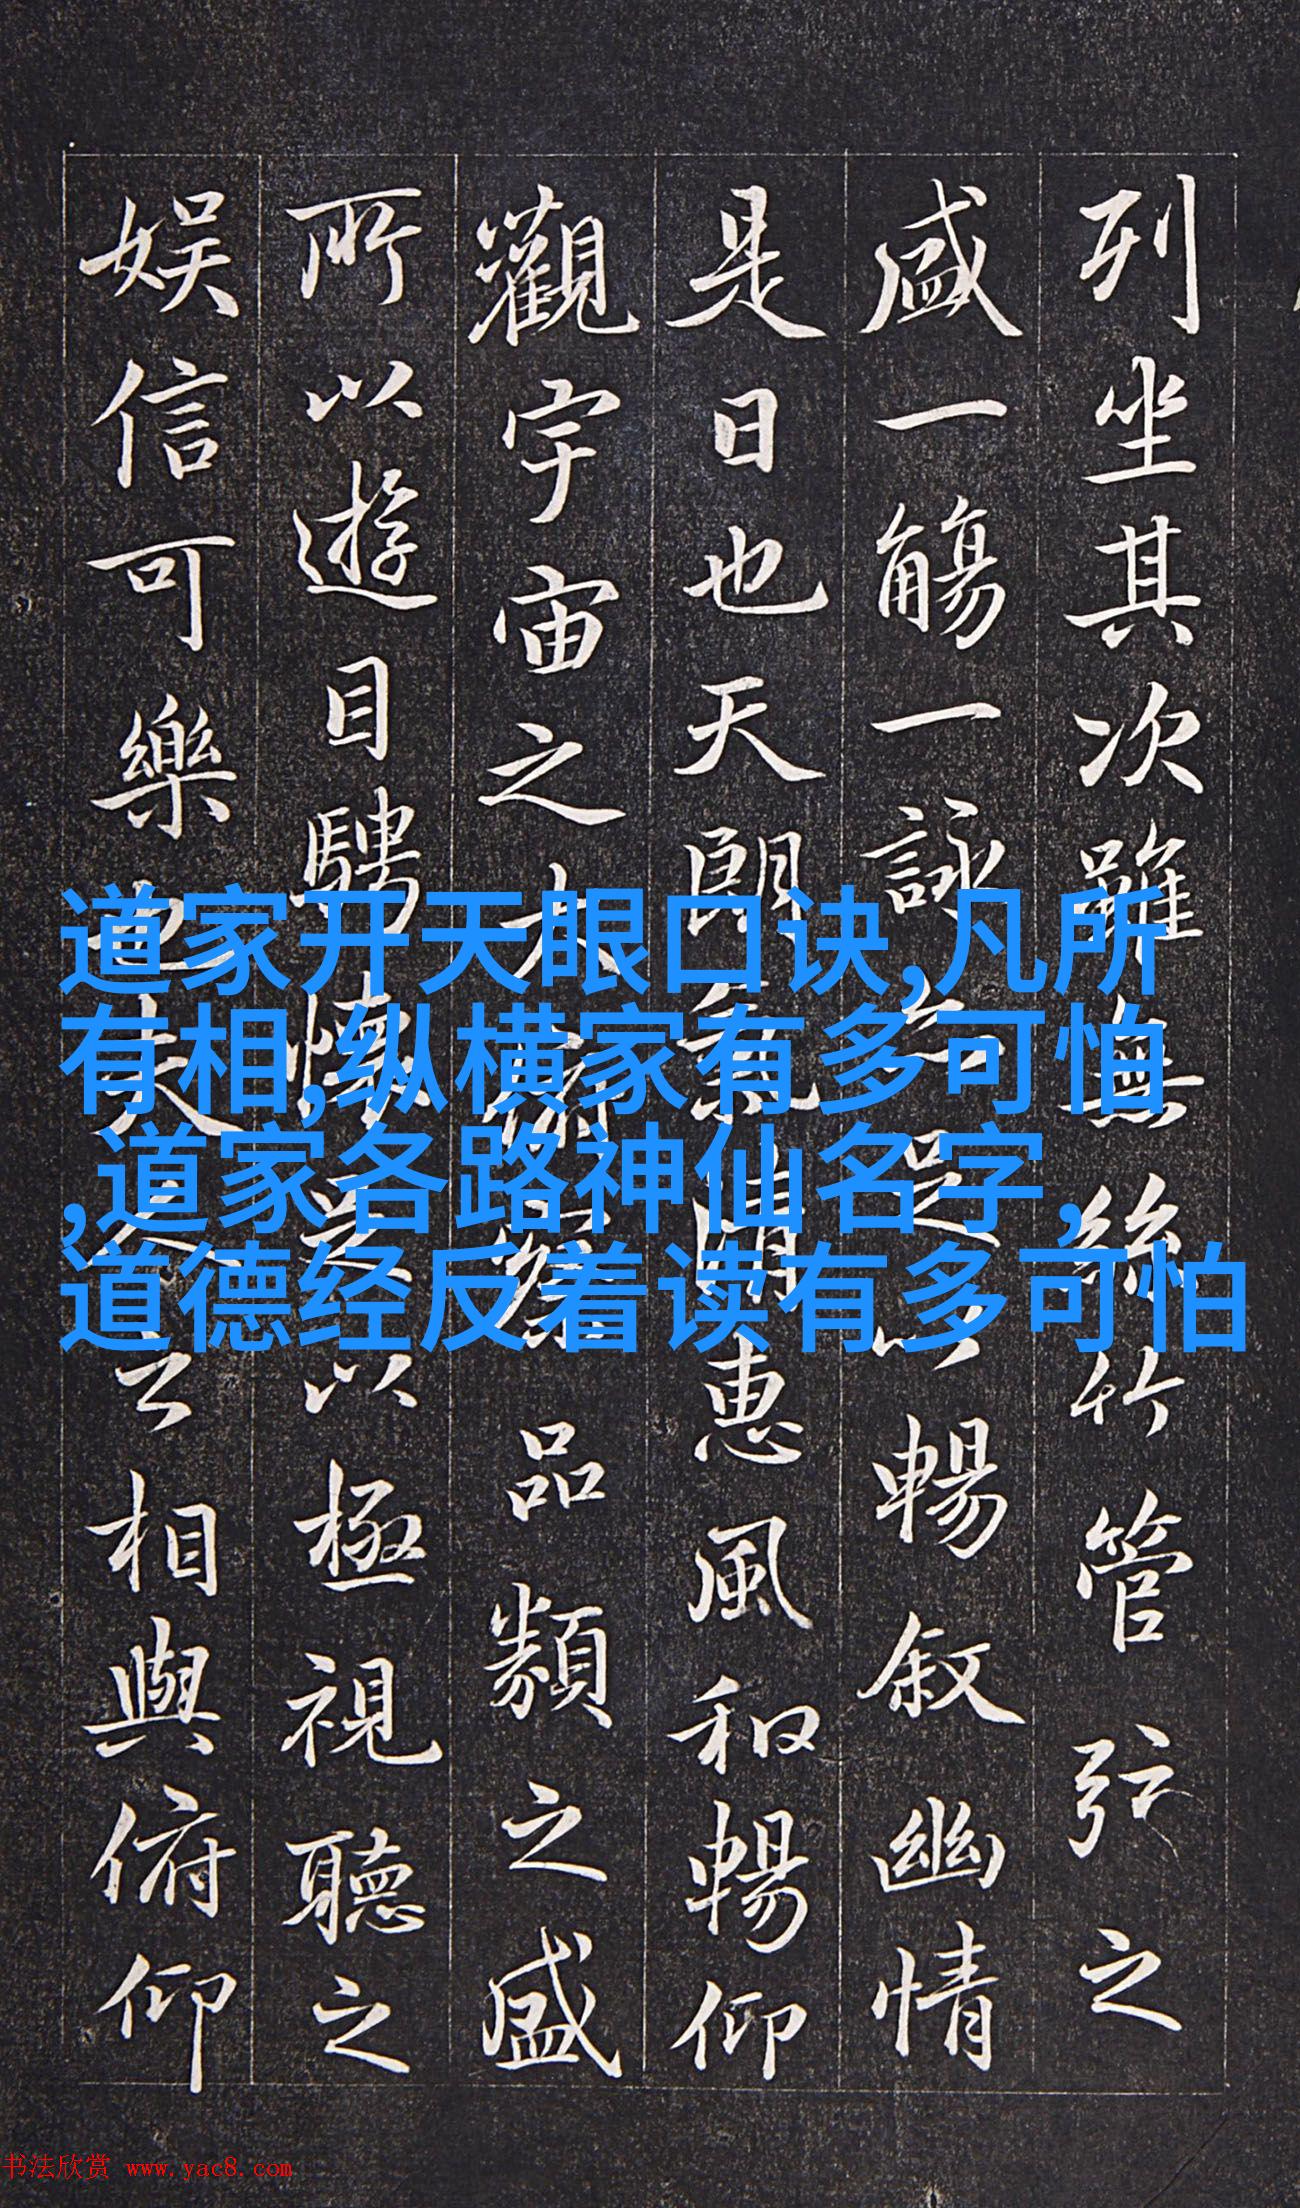 列坐其次雖無絲竹管弦之
盛一觴一詠亦足以暢敘幽情
是日也天朗氣清惠風和暢仰
觀宇宙之大俯察品類之盛
所以遊目騁懷足以極視聽之
娱信可樂也夫人之相與俯仰
道家开天眼口诀,凡所
有相,纵横家有多可怕
,道家各路神仙名字，
道德经反着读有多可怕
书法欣赏 www.yac8.com